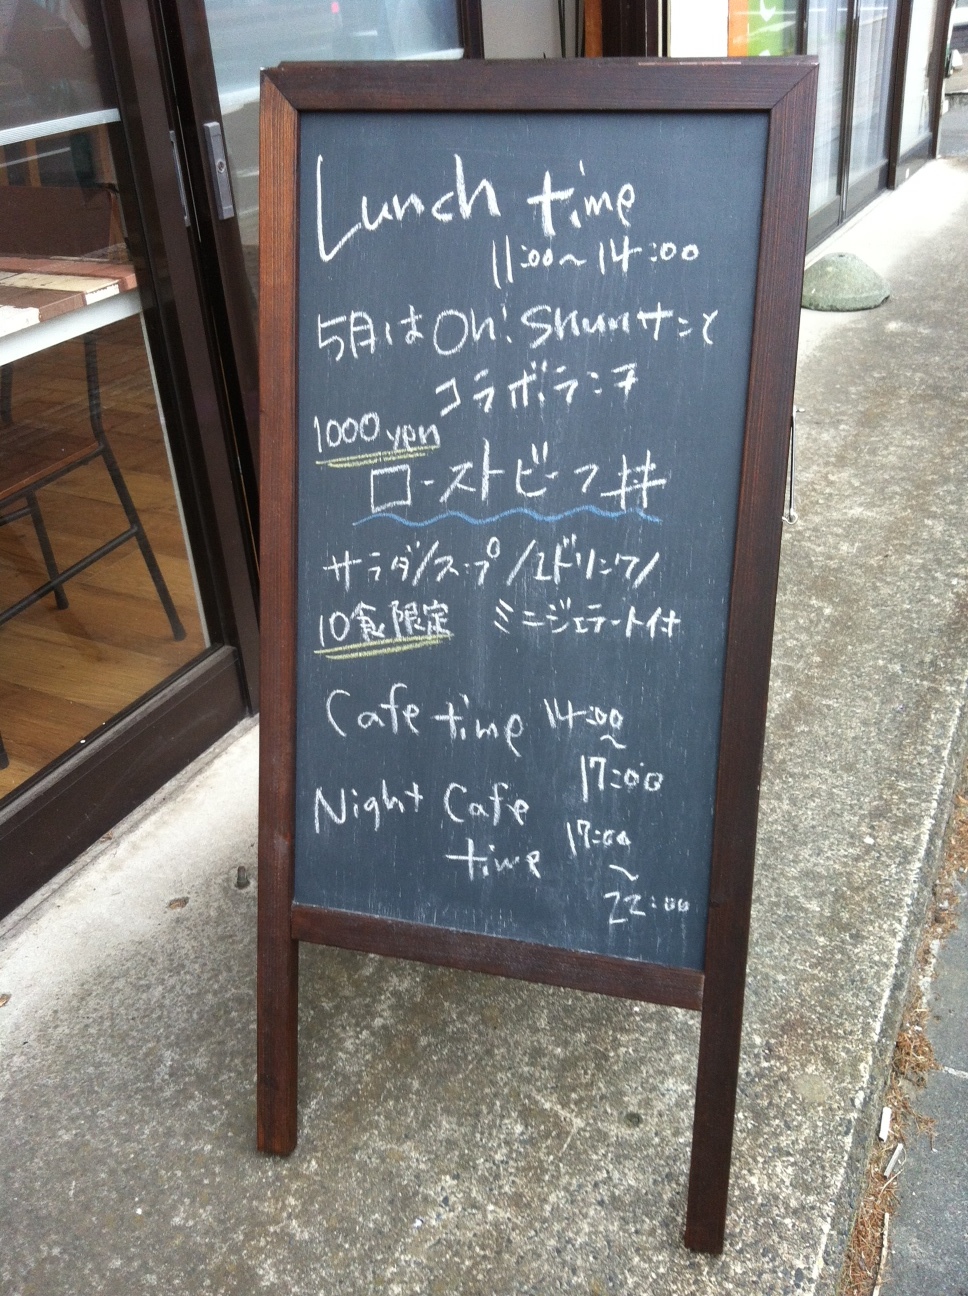 Lunch time
11:00~14:00
5月はOh! Shunサンと
コラボランチ
1000 yen
ローストビーフ丼
サラダ/スープ/1ドリンク/
10食限定 ミニジェラート付
Cafe time 14:00
~
17:00
Night Cafe
time 17:00
~
22:00